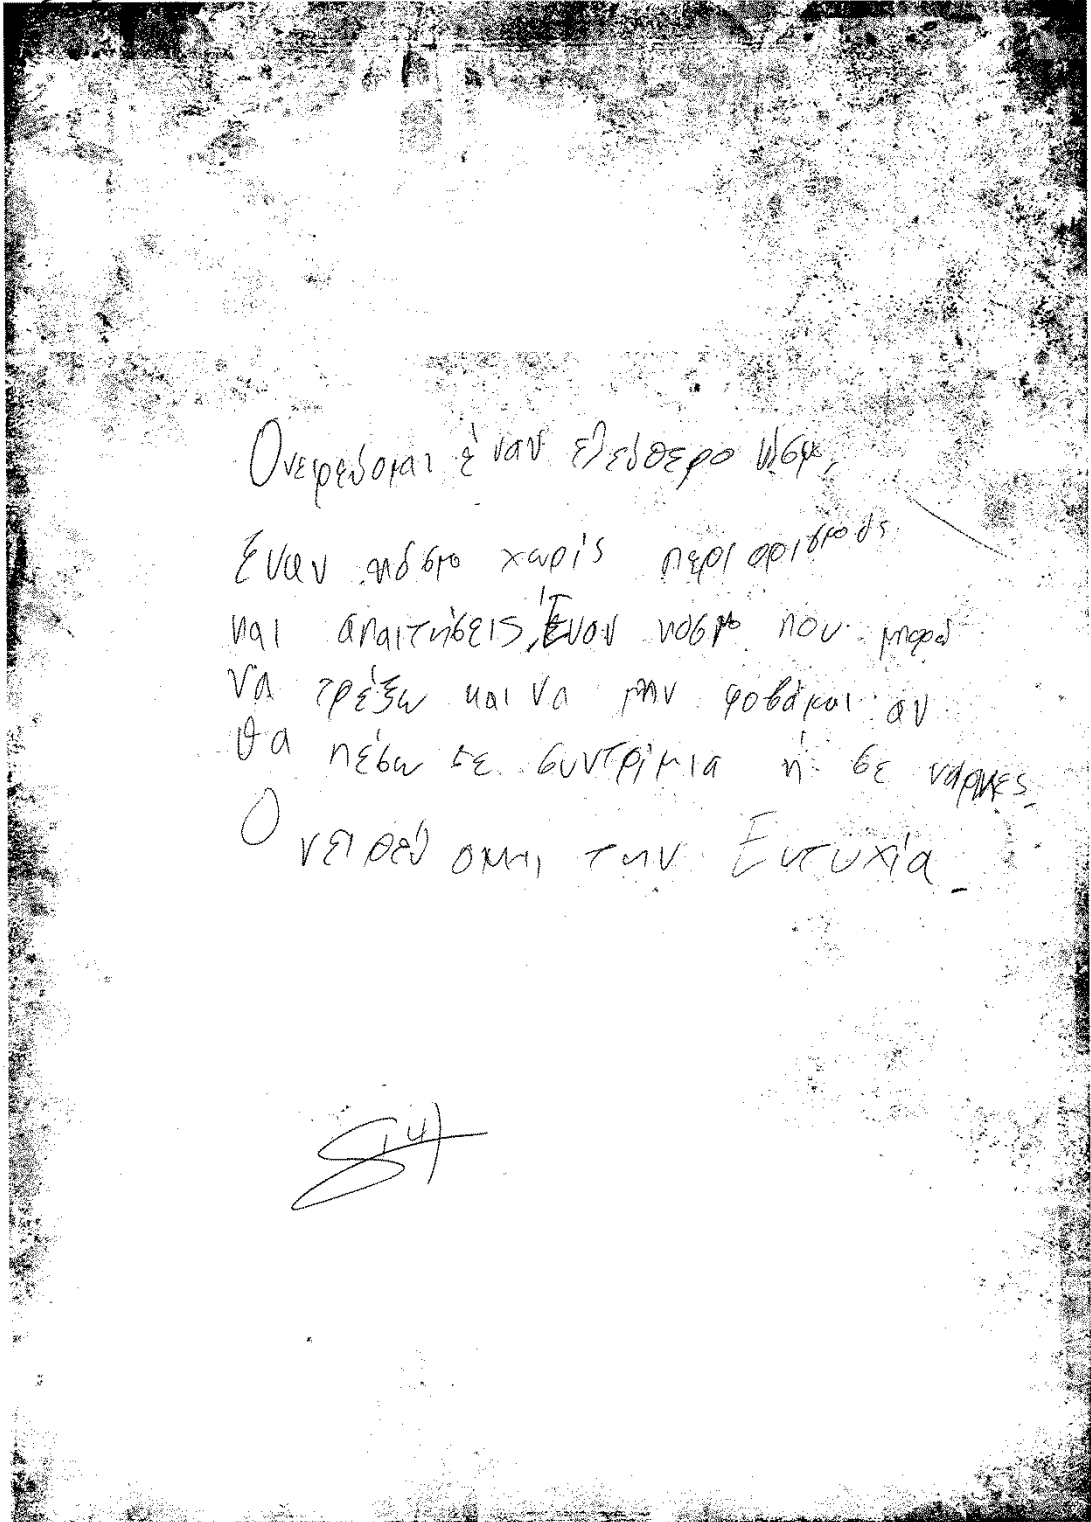 Ονειρεύομαι έναν ελεύθερο κόσμο,
Έναν κόσμο χωρίς περιορισμούς
και απαιτήσεις, Έναν κόσμο που μπορώ
να τρέξω και να μην φοβάμαι αν
θα πέσω σε συντρίμια ή σε νάρκες.
Ονειρεύομαι την Ευτυχία.